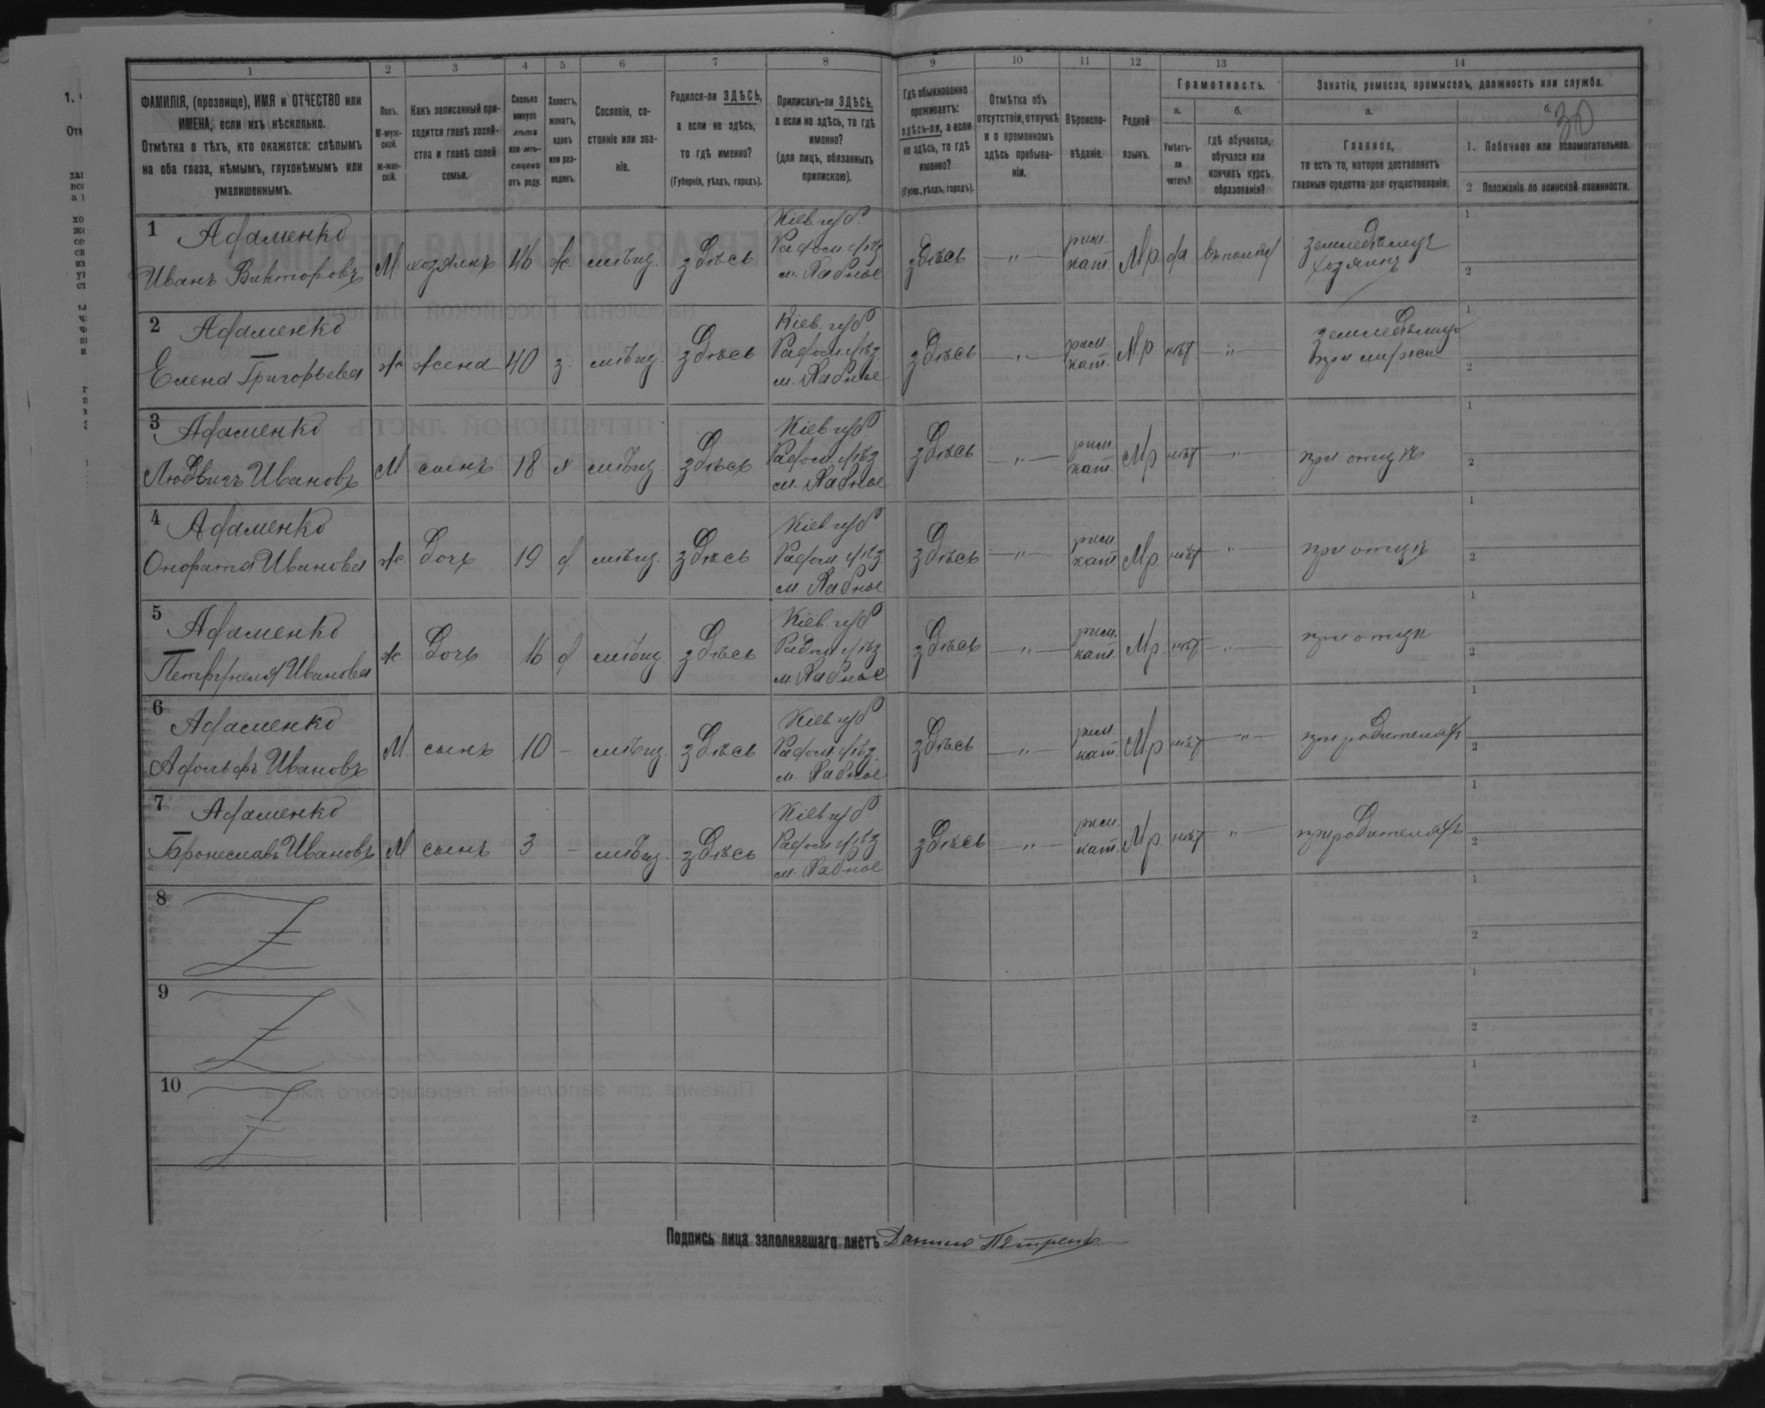 1 2 3 4 5 6 7 8 9 10 11 12 13 14
ФАМИЛІЯ, (прозвище), ИМЯ и ОТЧЕСТВО или
ИМЕНА, если ихъ нѣсколько.
Отмѣтка о тѣхъ, кто окажется: слѣпымъ
на оба глаза, нѣмымъ, глухонѣмымъ или
умалишеннымъ.
Полъ.
М-муж-
ской.
ж-жен-
скій.
Какъ записанный при-
ходится главѣ хозяй-
ства и главѣ своей
семьи.
Сколько
минуло
лѣтъ
или мѣ-
сяцевъ
отъ роду.
Холостъ,
женатъ,
вдовъ
или раз-
веденъ.
Сословіе, со-
стояніе или зва-
ніе.
Родился-ли ЗДѢСЬ,
а если не здѣсь,
то гдѣ именно?
(Губернія, уѣздъ, городъ).
Приписанъ-ли ЗДѢСЬ,
а если не здѣсь, то гдѣ
именно?
(для лицъ, обязанныхъ
припискою).
Гдѣ обыкновенно
проживаетъ:
здѣсь-ли, а если
не здѣсь, то гдѣ
именно?
(Губ., уѣздъ, городъ).
Отмѣтка объ
отсутствіи, отлучкѣ
и о временномъ
здѣсь пребыва-
ніи.
Вѣроиспо-
вѣданіе.
Родной
языкъ.
Грамотность.
а.
Умѣетъ-
ли
читать?
б.
гдѣ обучается,
обучался или
кончилъ курсъ
образованія?
Занятіе, ремесло, промыселъ, должность или служба.
а.
Главное,
то есть то, которое доставляетъ
главныя средства для существованія.
б.
30
1. Побочное или вспомогательное.
2 Положеніе по воинской повинности.
1 Адаменко
Иванъ Викторовъ М хозяинъ 46 ж. мѣщ. здѣсь
Кіев. губ
Радом. уѣз
м. Хабное
здѣсь — " — рим. кат. Мр да
земледѣлецъ
хозяинъ
2 Адаменко
Елена Григорьева ж жена 40 з. мѣщ. здѣсь
Кіев. губ
Радом. уѣз
м. Хабное
здѣсь — " — рим. кат. Мр нѣт — " —
при мужи
3 Адаменко
Людвигъ Ивановъ М сынъ 18 х мѣщ здѣсь
Кіев губ
Радом. уѣз
м. Хабное
здѣсь — " — рим. кат. Мр нѣт — " — при отцѣ
4 Адаменко
Онофата Иванова ж. дочь 19 д мѣщ. здѣсь
Кіев губ
Радом. уѣз
м. Хабное
здѣсь — " — рим. кат. Мр. нѣт — " — при отцѣ
5 Адаменко
Петрунеля Иванова ж. дочь 16 д мѣщ. здѣсь
Кіев. губ
Радом уѣз
м. Хабное
здѣсь — " — рим. кат. Мр. нѣт — " — при отцѣ
6 Адаменко
Адольфъ Ивановъ М. сынъ 10 – мѣщ здѣсь
Кіев. губ
Радом. уѣз
м. Хабное
здѣсь — " — рим. кат. Мр нѣт — " — при родителяхъ
7 Адаменко
Брониславъ Ивановъ М сынъ 3 – мѣщ. здѣсь
Кіев губ
Радом уѣз
м. Хабное
здѣсь — " — рим. кат. Мр. нѣт " — при родителяхъ
8
9
10
Подпись лица заполнявшаго листъ